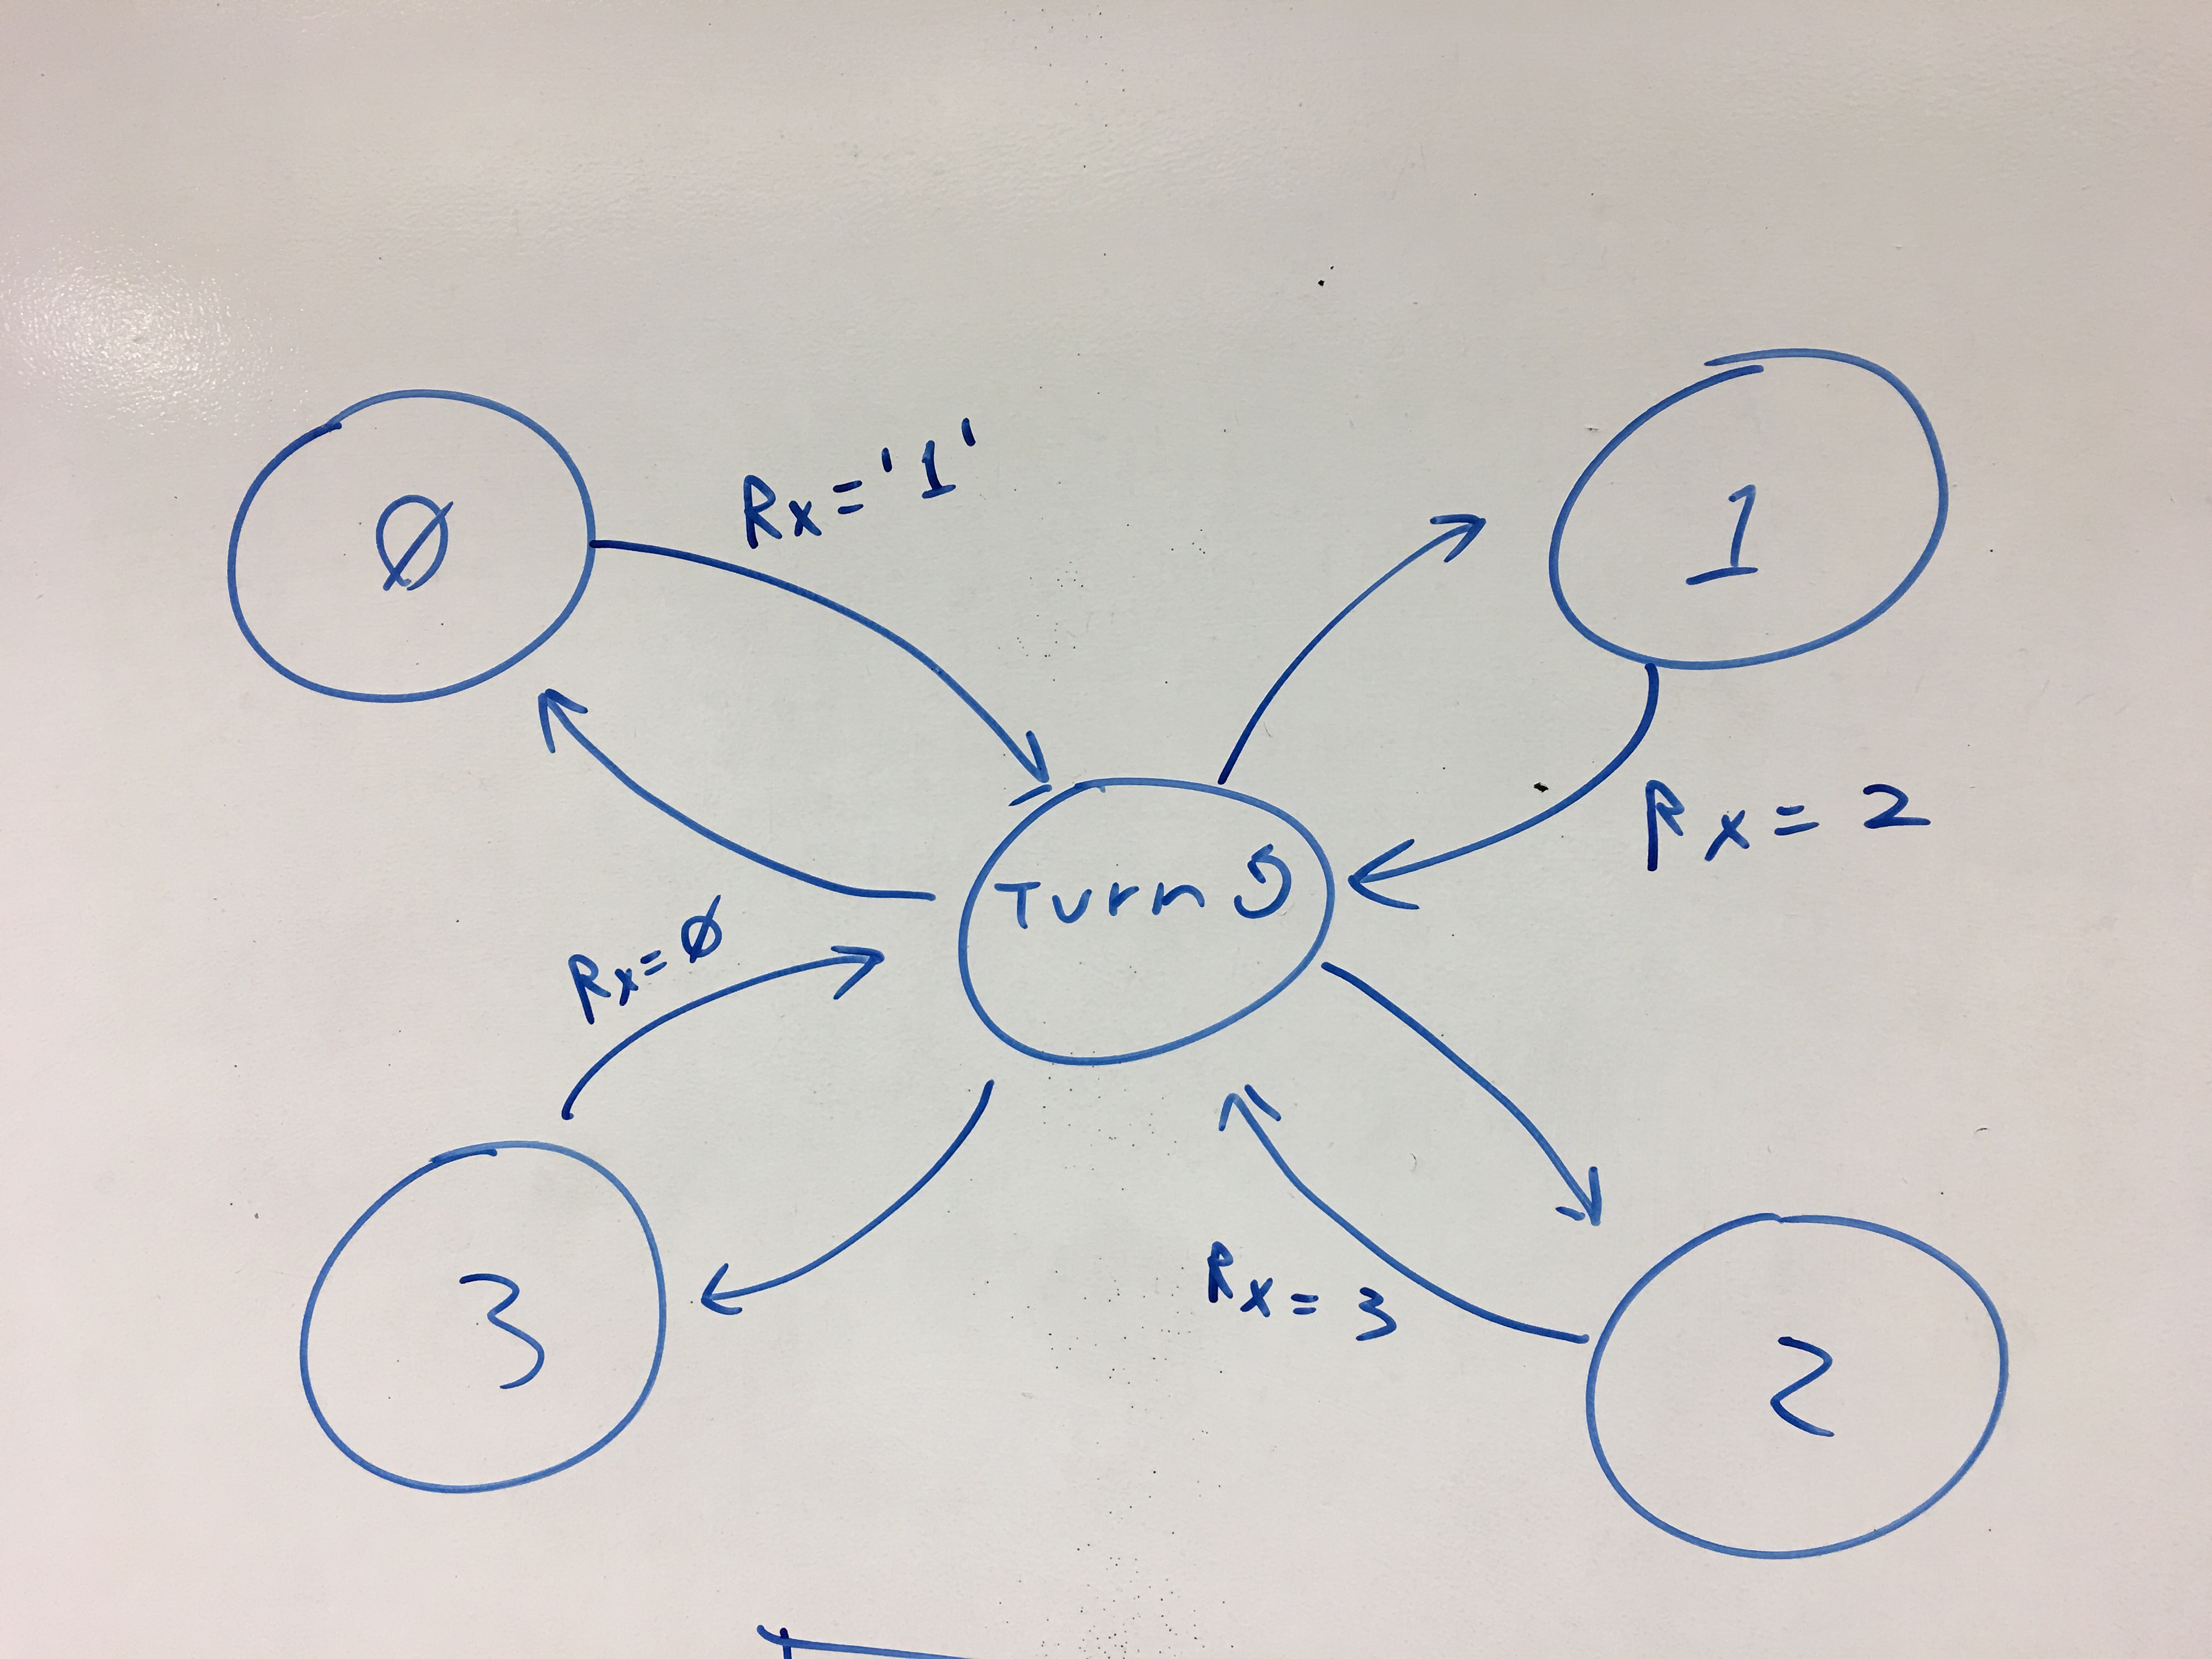 Ø
Rx='1'
1
Rx=2
Turn
Rx=Ø
3
Rx=3
2